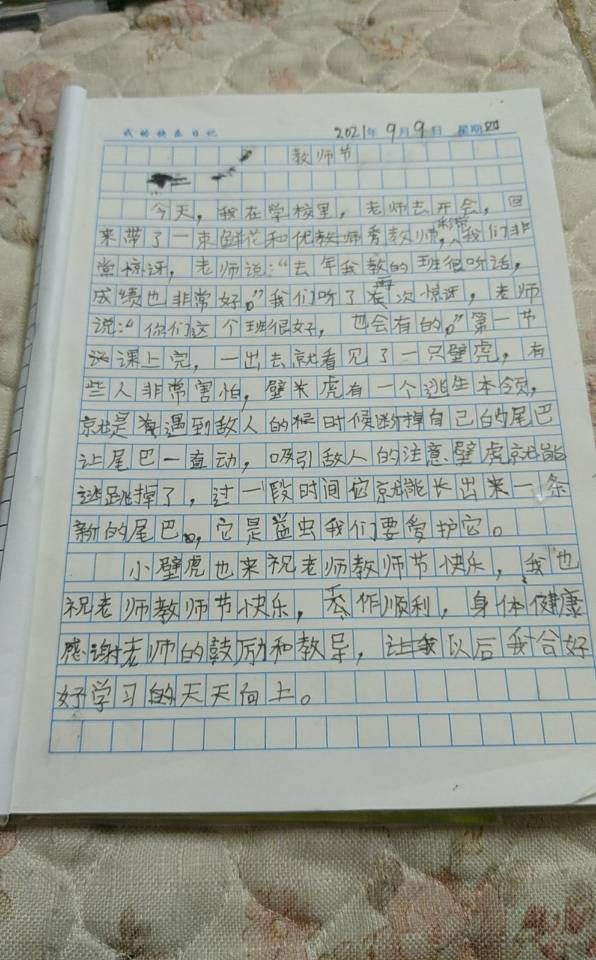 我的快乐日记 2021年9月9日 星期四
教师节
今天，我在学校里，老师去开会，回
来带了一束鲜花和优教师秀教师，我们非
常惊讶，老师说：“去年我教的班很听话，
成绩也非常好。”我们听了再次惊讶，老师
说：“你们这个班很好，也会有的。”第一节
课上完，一出去就看见了一只壁虎，有
些人非常害怕，壁虎有一个逃生本领，
就是遇到敌人的时候断掉自己的尾巴
让尾巴一直动，吸引敌人的注意壁虎就能
逃跳掉了，过一段时间它就能长出来一条
新的尾巴，它是益虫我们要爱护它。
小壁虎也来祝老师教师节快乐，我也
祝老师教师节快乐，作顺利，身体健康
感谢老师的鼓励和教导，以后我会好
好学习的天天向上。